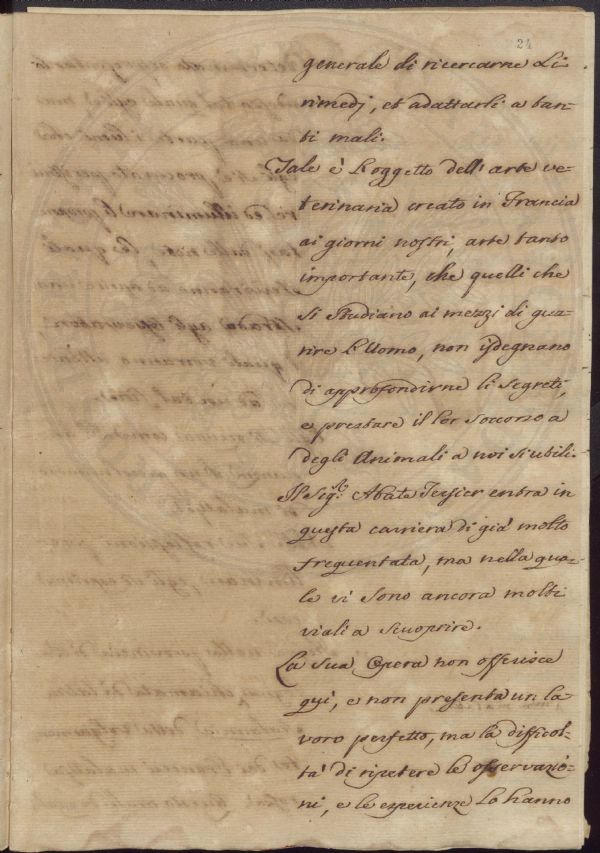 24
generale di ricercarne Li
rimedj, et adattarli a tan-
ti mali.
Tale è L'oggetto dell'arte ve-
terinaria creato in Francia
ai giorni nostri, arte tanto
importante, che quelli che
si studiano ai mezzi di gua-
rire L'Uomo, non isdegnano
di approfondirne li segreti,
e prestare il lor soccorso a
degli Animali a noi si utili.
Il Sig.r Abate Tessier entra in
questa carriera di già molto
frequentata, ma nella qua-
le vi sono ancora molti
viali a scuoprire.
La sua Opera non offerisce
quì, e non presenta un la-
voro perfetto, ma la difficol-
tà di ripetere le osservazio-
ni, e le esperienze Lo hanno